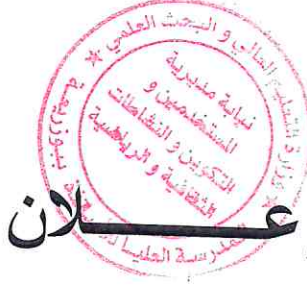 وزارة التعليم العالي و البحث العلمي
نيابة مديرية
المستخدمين و
التكوين و النشاطات
الثقافية و الرياضية
المدرسة العليا
بوزريعة
عـــلان